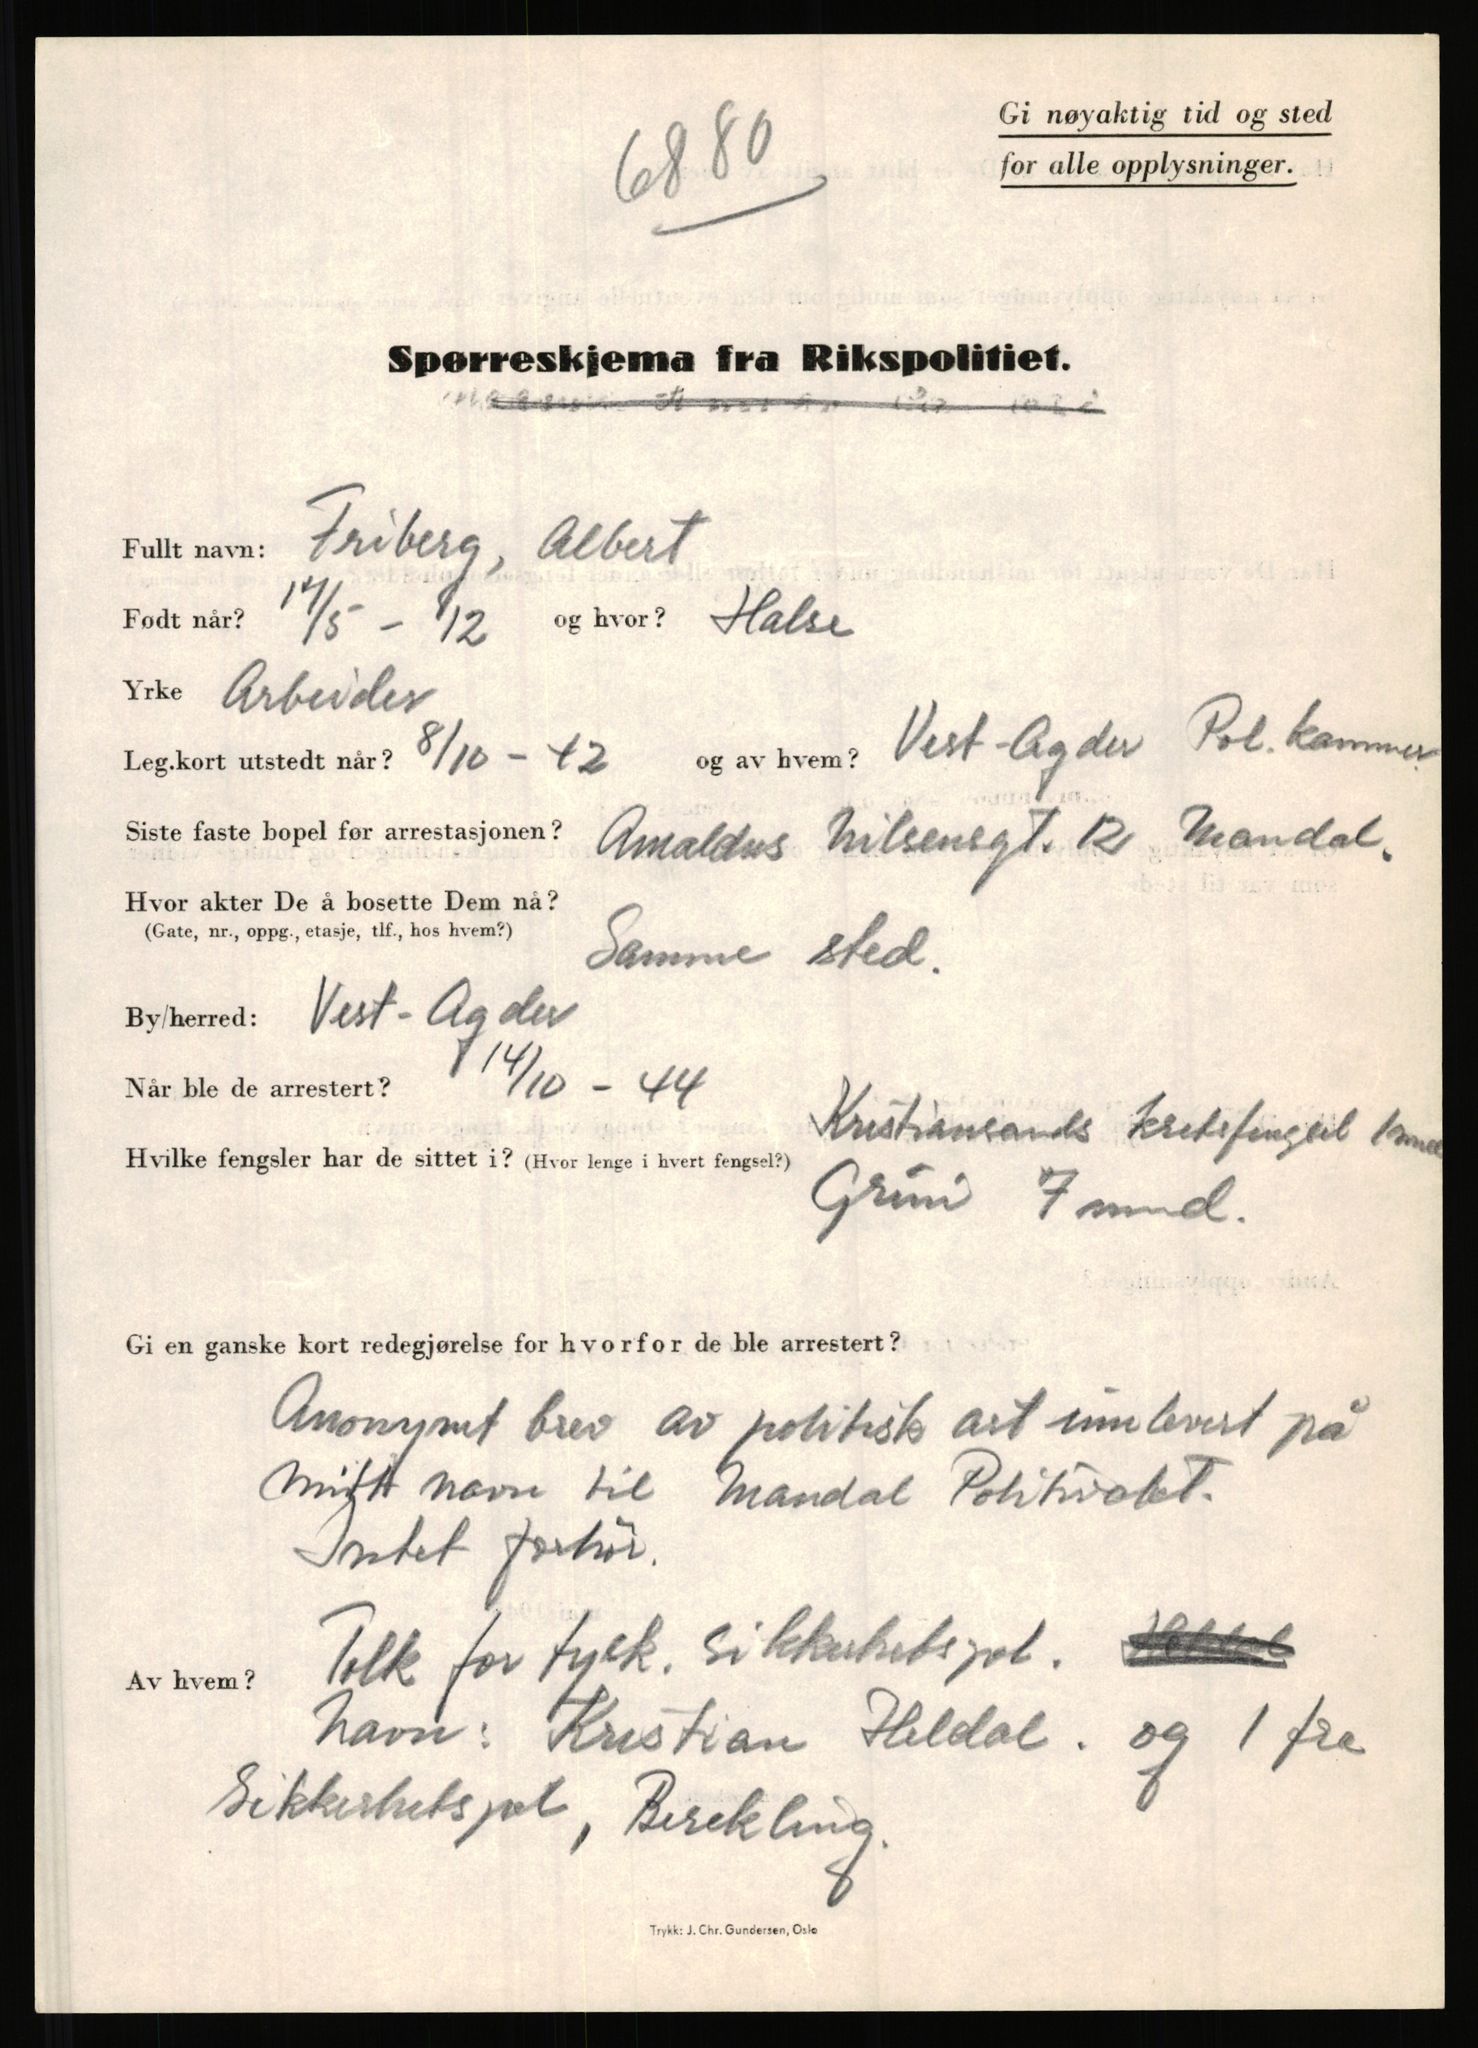 6880
Gi nøyaktig tid og sted
for alle opplysninger.
Spørreskjema fra Rikspolitiet.
Fullt navn: Friberg, Albert
Født når? 17/5 - 12 og hvor? Halse
Yrke Arbeider
Leg.kort utstedt når? 8/10 - 42 og av hvem? Vest-Agder Pol. kammer
Siste faste bopel før arrestasjonen? Amaldus Nilsensgt. 12 Mandal.
Hvor akter De å bosette Dem nå?
(Gate, nr., oppg., etasje, tlf., hos hvem?) Samme sted.
By/herred: Vest-Agder
Når ble de arrestert? 14/10 - 44
Hvilke fengsler har de sittet i? (Hvor lenge i hvert fengsel?) Kristiansands kretsfengsel 1 mnd
Grini 7 mnd.
Gi en ganske kort redegjørelse for hvorfor de ble arrestert?
Anonymt brev av politisk art innlevert på
mitt navn til Mandal Politivakt.
Intet forhør.
Av hvem? Tolk for tysk. Sikkerhetspol.
Navn: Kristian Heldal. og 1 fra
Sikkerhetspol, Berekling.
Trykk: J. Chr. Gundersen, Oslo